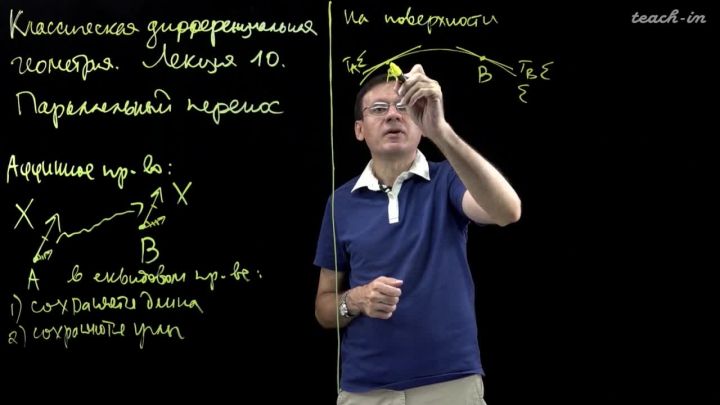 Классическая дифференциальная
геометрия. Лекция 10.
Параллельный перенос
Аффинное пр-во:
X
X
A
B
в евклидовом пр-ве:
1) сохраняется длина
2) сохраняются углы
На поверхности
T_A Σ
A
B
T_B Σ
Σ
teach-in